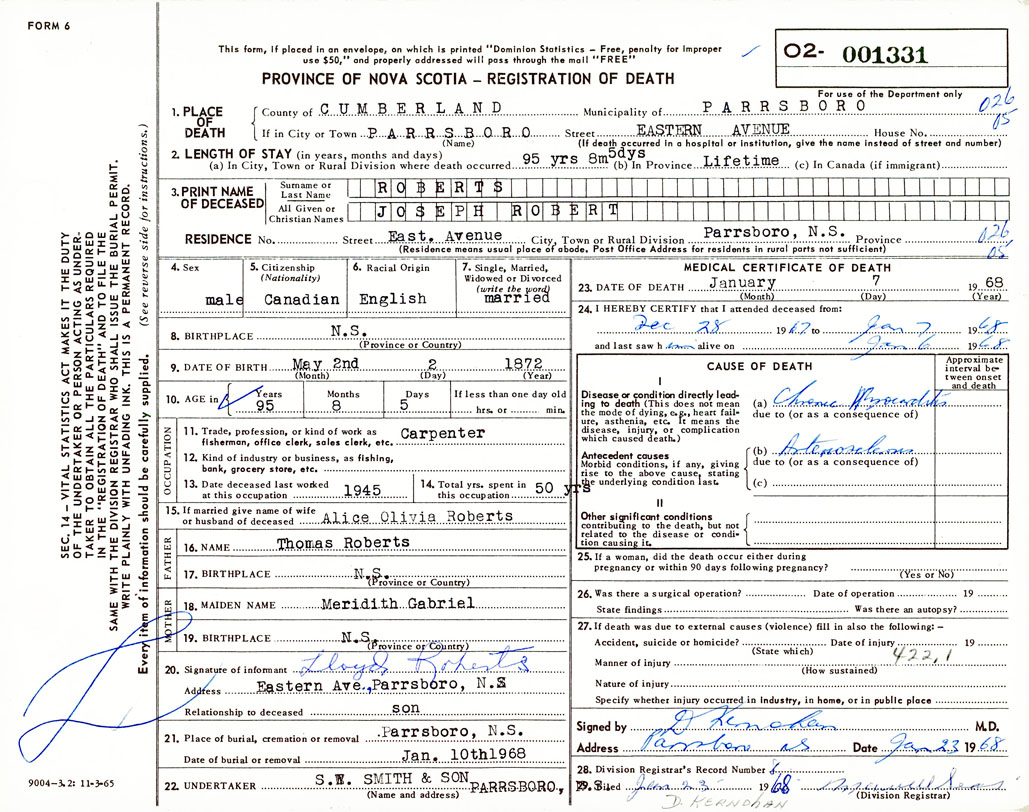 FORM 6
This form, if placed in an envelope, on which is printed "Dominion Statistics – Free, penalty for improper
use $50," and properly addressed will pass through the mail "FREE"
PROVINCE OF NOVA SCOTIA – REGISTRATION OF DEATH
02- 001331
For use of the Department only
026
05
1. PLACE OF DEATH
County of CUMBERLAND Municipality of PARRSBORO
If in City or Town PARRSBORO Street EASTERN AVENUE House No.
(Name) (If death occurred in a hospital or institution, give the name instead of street and number)
2. LENGTH OF STAY (in years, months and days)
(a) In City, Town or Rural Division where death occurred 95 yrs 8m 5dys (b) In Province Lifetime (c) In Canada (if immigrant)
3. PRINT NAME OF DECEASED
Surname or Last Name ROBERTS
All Given or Christian Names JOSEPH ROBERT
RESIDENCE No. Street East. Avenue City, Town or Rural Division Parrsboro, N.S. Province
(Residence means usual place of abode. Post Office Address for residents in rural parts not sufficient)
026
05
4. Sex
male
5. Citizenship (Nationality)
Canadian
6. Racial Origin
English
7. Single, Married, Widowed or Divorced (write the word)
married
8. BIRTHPLACE N.S.
(Province or Country)
9. DATE OF BIRTH May 2nd 2 1872
(Month) (Day) (Year)
10. AGE in Years Months Days If less than one day old
95 8 5 hrs. or min.
OCCUPATION
11. Trade, profession, or kind of work as fisherman, office clerk, sales clerk, etc. Carpenter
12. Kind of industry or business, as fishing, bank, grocery store, etc.
13. Date deceased last worked at this occupation 1945
14. Total yrs. spent in this occupation 50 yrs
15. If married give name of wife or husband of deceased Alice Olivia Roberts
FATHER
16. NAME Thomas Roberts
17. BIRTHPLACE N.S.
(Province or Country)
MOTHER
18. MAIDEN NAME Meridith Gabriel
19. BIRTHPLACE N.S.
(Province or Country)
20. Signature of informant Lloyd Roberts
Address Eastern Ave., Parrsboro, N.S
Relationship to deceased son
21. Place of burial, cremation or removal .Parrsboro, N.S.
Date of burial or removal Jan. 10th1968
22. UNDERTAKER S.W. SMITH & SON PARRSBORO,
(Name and address)
MEDICAL CERTIFICATE OF DEATH
23. DATE OF DEATH January 7 1968
(Month) (Day) (Year)
24. I HEREBY CERTIFY that I attended deceased from:
Dec 28 1967 to Jan 7 1968
and last saw him alive on Jan 6 1968
CAUSE OF DEATH
Approximate interval between onset and death
I
Disease or condition directly leading to death (This does not mean the mode of dying, e.g., heart failure, asthenia, etc. It means the disease, injury, or complication which caused death.)
(a) Chronic Myocarditis
due to (or as a consequence of)
Antecedent causes
Morbid conditions, if any, giving rise to the above cause, stating the underlying condition last.
(b)
due to (or as a consequence of)
(c)
II
Other significant conditions
contributing to the death, but not related to the disease or condition causing it.
25. If a woman, did the death occur either during
pregnancy or within 90 days following pregnancy?
(Yes or No)
26. Was there a surgical operation? Date of operation 19
State findings Was there an autopsy?
27. If death was due to external causes (violence) fill in also the following: –
Accident, suicide or homicide? Date of injury 19
(State which)
422,1
Manner of injury
(How sustained)
Nature of injury
Specify whether injury occurred in industry, in home, or in public place
Signed by D Kernohan M.D.
Address Parrsboro NS Date Jan 23 1968
28. Division Registrar's Record Number 8
29. Filed Jan 23 1968
(Division Registrar)
D. KERNOHAN
SEC. 14 – VITAL STATISTICS ACT MAKES IT THE DUTY
OF THE UNDERTAKER OR PERSON ACTING AS UNDER-
TAKER TO OBTAIN ALL THE PARTICULARS REQUIRED
IN THE "REGISTRATION OF DEATH" AND TO FILE THE
SAME WITH THE DIVISION REGISTRAR WHO SHALL ISSUE THE BURIAL PERMIT.
WRITE PLAINLY WITH UNFADING INK. THIS IS A PERMANENT RECORD.
Every item of information should be carefully supplied. (See reverse side for instructions.)
9004-3.2: 11-3-65